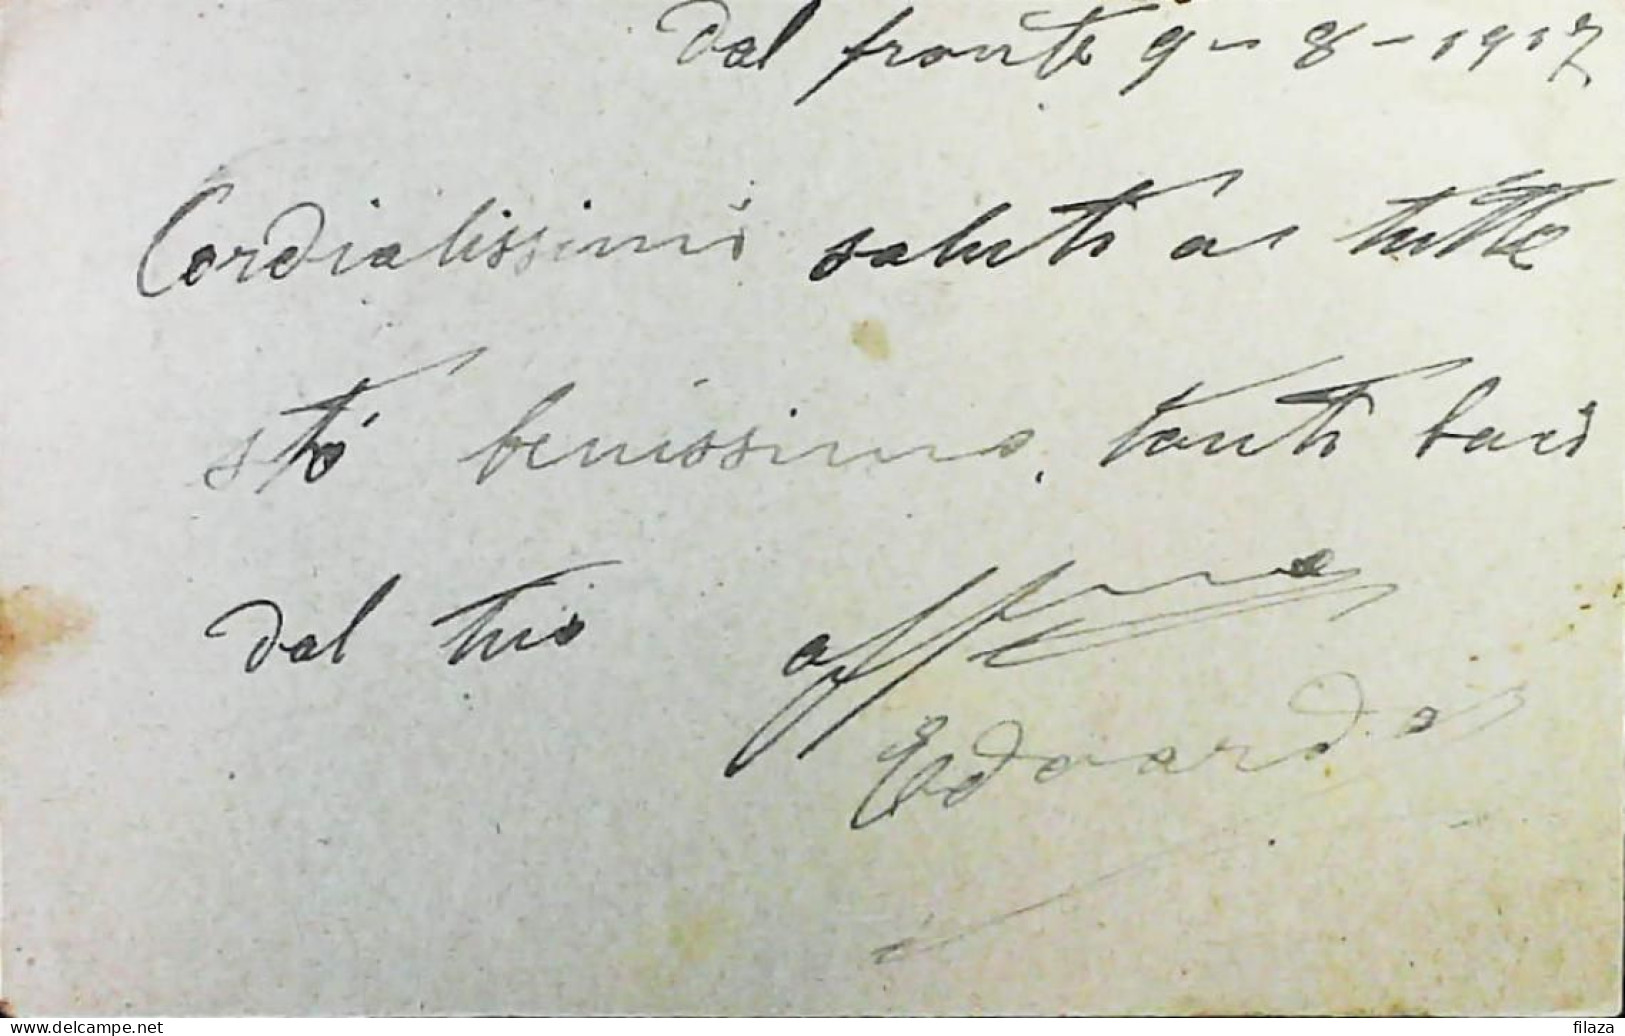 Dal fronte 9-8-1917
Cordialissimi saluti a tutte
stó benissimo. tanti baci
dal tuo affmo
Edoardo
delcampe.net
filaza